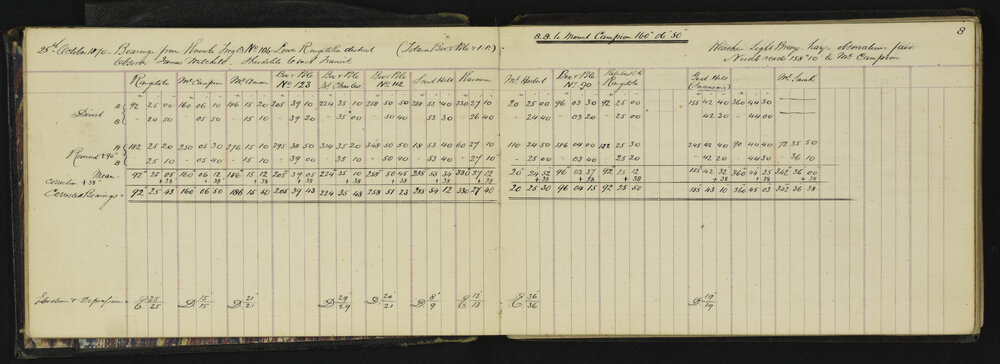 8
25th October 1870 - Bearings from Trig D No 106 Lower Rangitikei district (Totara Box & Pole
B.B. to Mount Campion 160° 06' 50"
Weather Light Breezy hazy observations fair
Observer James Mitchell - Theodolite Transit
Needle reads 158° 10 to Mt Campion
Rangitoto Mt Campion Mt Box & Pole No 123 Mt Charles Box & Pole No 112 Sand Hill Mt Herbert Box & Pole No 90 Rangitoto Sand Hill Mt Sarah
Direct A 92 25 00 160 06 10 186 15 20 205 39 10 224 35 10 258 50 50 288 53 40 330 27 10 20 25 00 96 03 30 92 25 00 155 42 40 360 44 30
B - 24 50 - 05 50 - 15 10 - 39 20 - 35 00 - 50 40 - 53 30 - 26 40 - 24 40 - 03 20 - 25 00 42 30 - 44 00
Reversed & 90° A 182 25 20 250 05 30 276 15 10 295 38 50 314 35 20 348 50 50 18 53 40 60 27 10 110 24 50 186 04 00 182 25 30 245 42 40 90 44 40 72 35 50
B 25 10 - 05 40 - 15 10 - 39 00 - 35 10 - 50 40 - 53 40 - 27 10 - 25 00 03 40 - 25 20 - 42 20 44 30 - 36 10
Mean 92 25 05 160 06 12 186 15 12 205 39 05 224 35 10 258 50 45 288 53 34 330 27 12 20 24 52 96 03 37 92 25 12 155 42 32 360 44 25 342 36 00
Correction + 38 + 38 + 38 + 38 + 38 + 38 + 38 + 38 + 38 + 38 + 38 + 38 + 38 + 38
Corrected Bearings 92 25 43 160 06 50 186 15 50 205 39 43 224 35 48 258 51 23 288 54 12 330 27 40 20 25 30 96 04 15 92 25 50 155 43 10 360 45 03 342 36 38
Elevation & Depression E 25/25 D 15/15 D 21/21 D 29/29 D 20/21 D 8/9 E 13/13 E 36/36 D 19/19